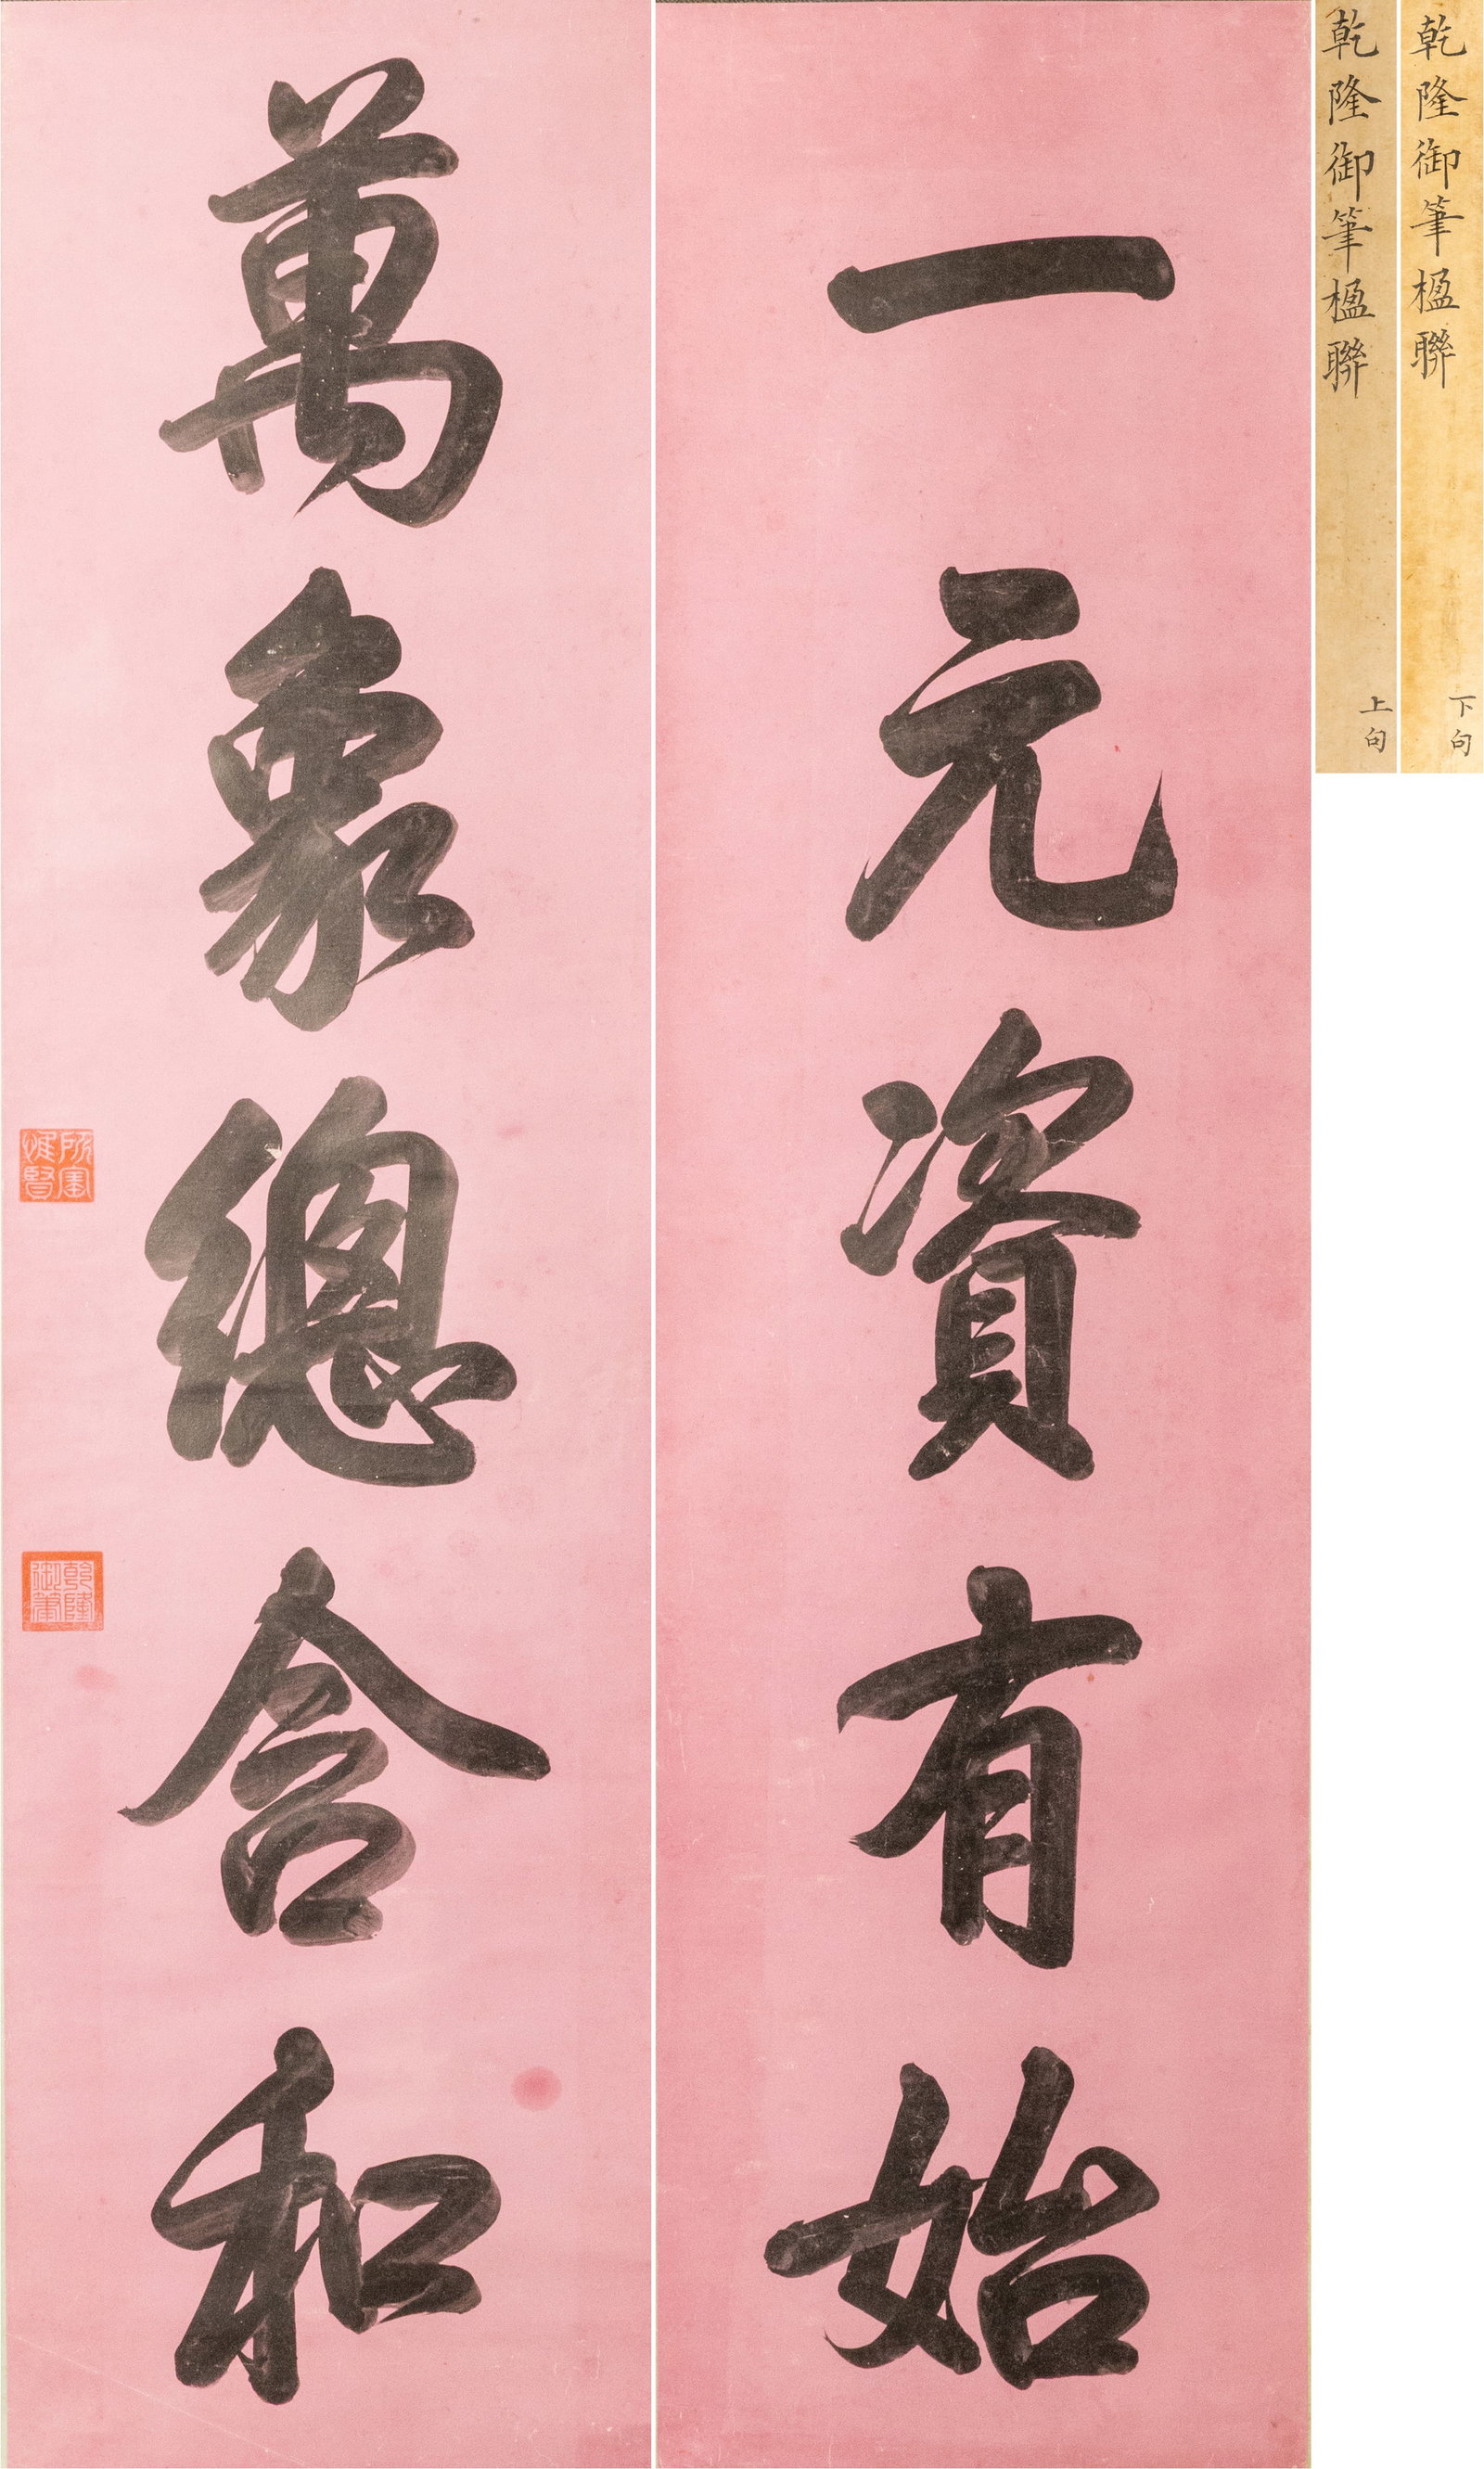 乾隆御筆楹聯 下句
乾隆御筆楹聯 上句
一元資有始
萬象總含和
所寶惟賢
乾隆御筆